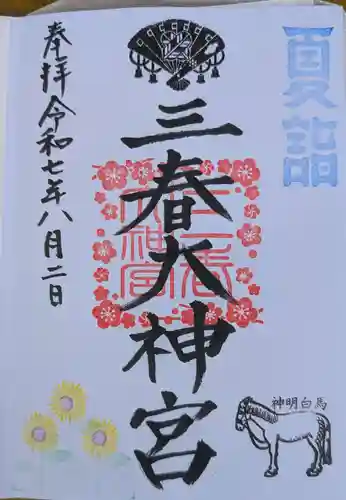 夏詣
三春大神宮
奉拝令和七年八月二日
三春大神宮
神明白馬